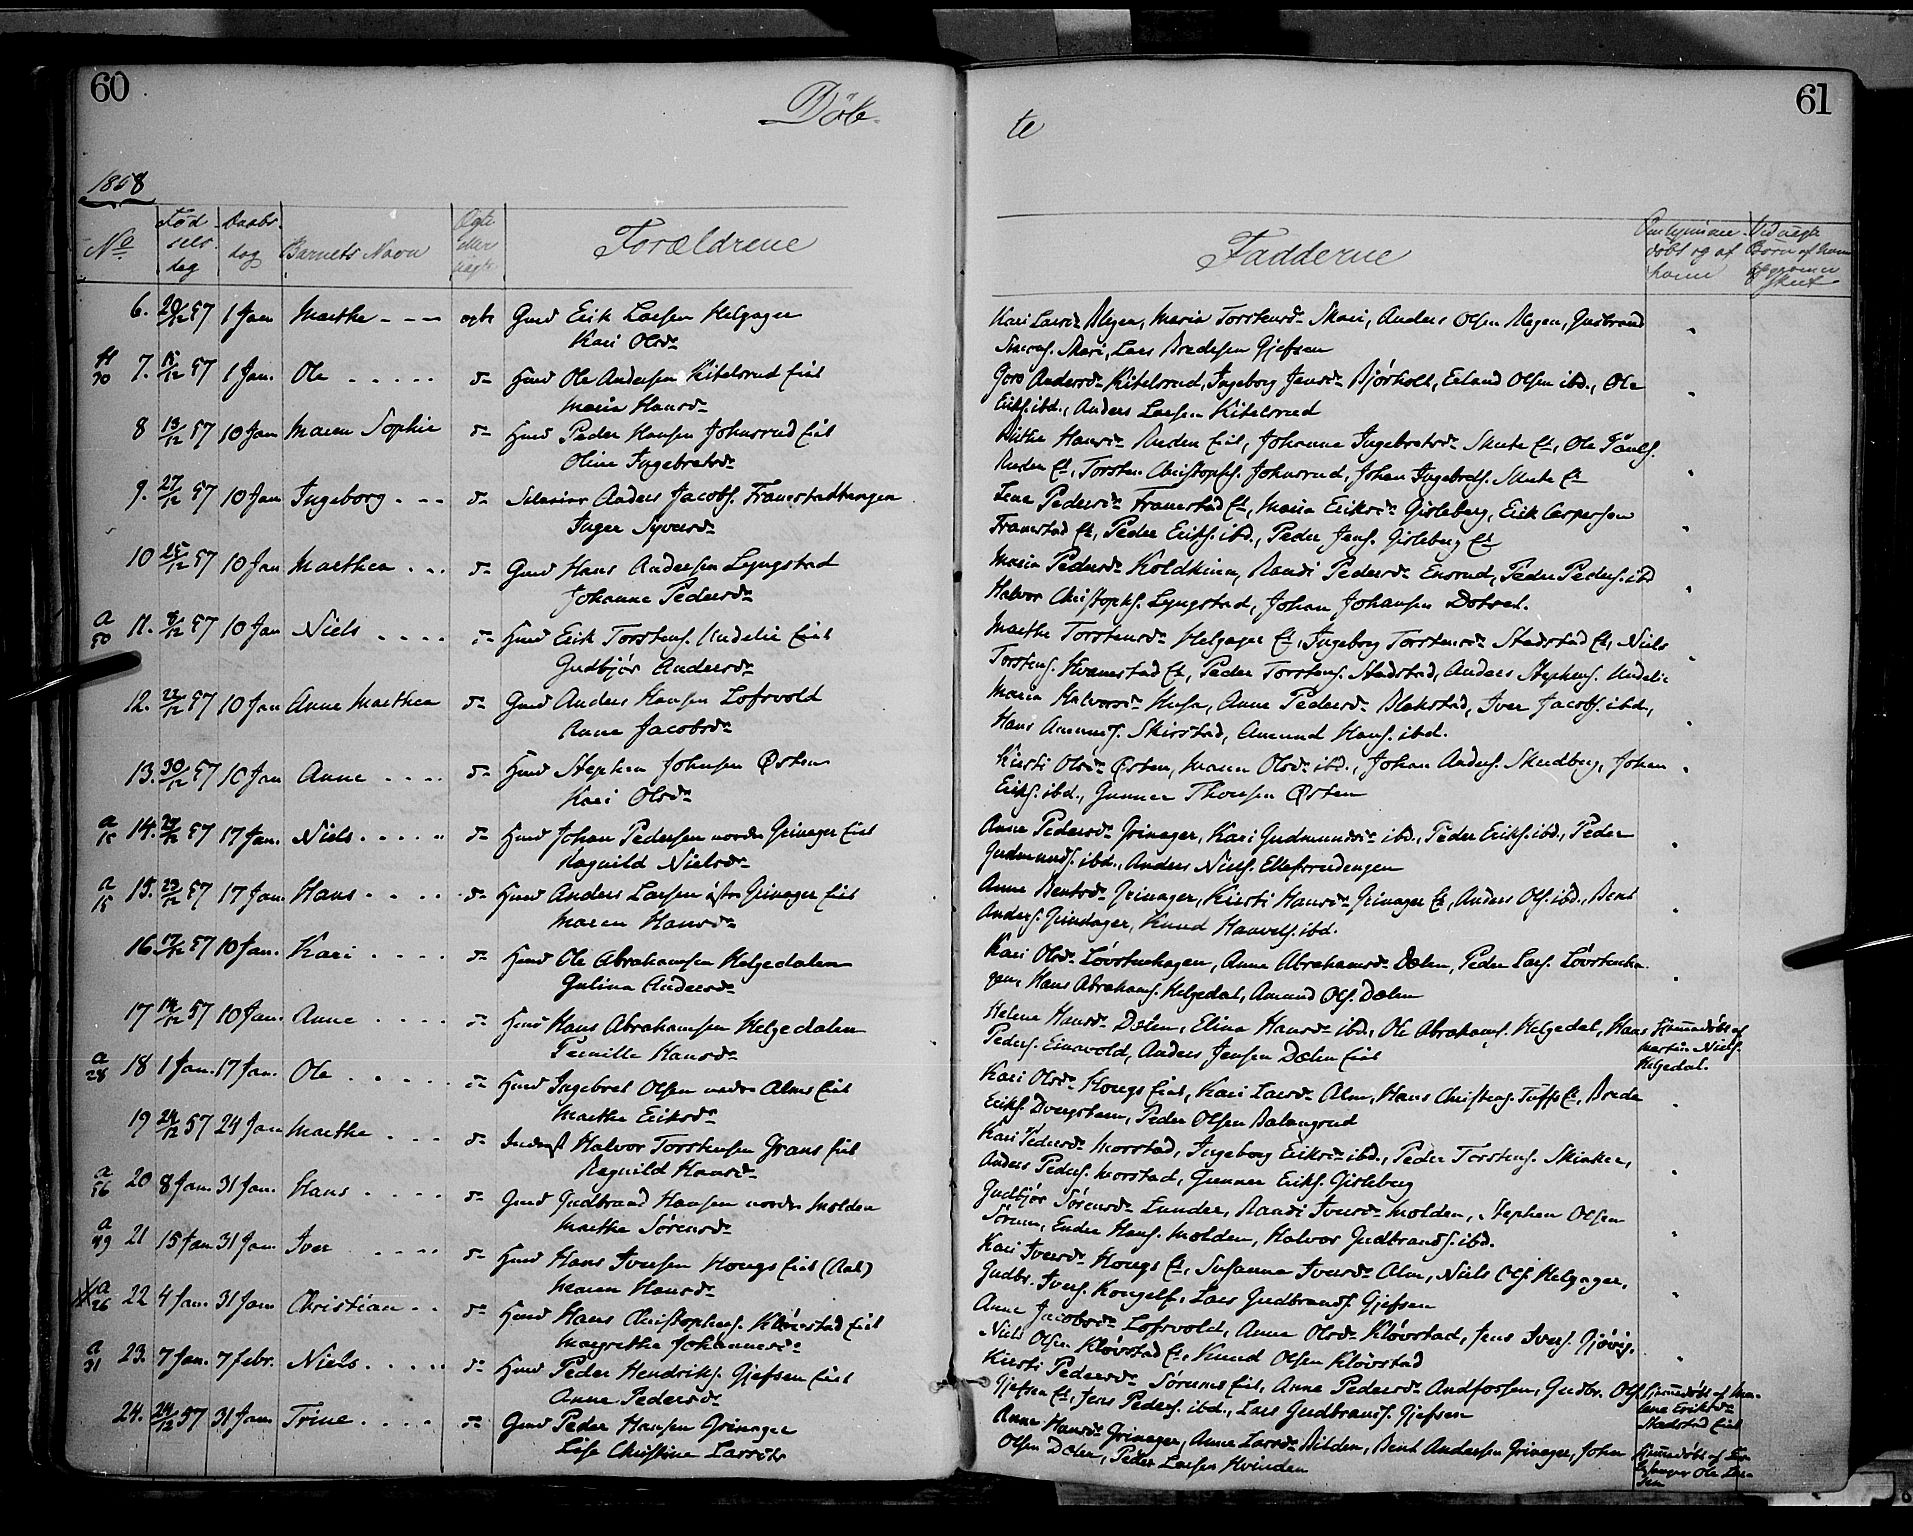 60
Döb-
1858
No
Fød
sels
dag
Daabs
dag
Barnets Navn
Ægte
eller
uægte
Forældrene
6. 20/12 57 1 Jan Marthe - - - ægte Gmd Erik Larsen Helgager
Kari Olsd.
7. 15/12 57 1 Jan. Ole . . . . . do Hmd Ole Andersen Kitelsrud Eiet
Maria Hansd.
8 13/12 57 10 Jan Maren Sophie do Hmd Peder Hansen Johnsrud Eiet
Oline Ingebretsd.
9. 27/12 57 10 Jan Ingeborg . - - do Selveier Anders Jacobs. Framstadtangen
Inger Syversd.
10 25/12 57 10 Jan Marthea . . . do Gmd Hans Andersen Lyngstad
Johanne Pedersd.
A
50 11. 8/12 57 10 Jan Niels . . . . do Hmd Erik Torstens. Undelie Eiet
Gudbjør Andersd.
12. 22/12 57 10 Jan Anne Marthea do Gmd Anders Hansen Lofsvold
Anne Jacobsd.
13. 30/12 57 10 Jan Anne . . . . do Hmd Stephen Johnsen Østen
Kari Olsd.
a
15 14. 29/12 57 17 Jan. Niels . . . . . do Hmd Johan Pedersen nordre Grinager Eiet
Ragnild Nielsd.
a
15 15. 23/12 57 17 Jan. Hans . . . . do Hmd Anders Larsen østre Grinager Eiet
Maren Hansd.
16 17/12 57 10 Jan. Kari . . . . do Hmd Ole Abrahamsen Helgedalen
Gulina Andersd.
17 14/12 57 10 Jan. Anne . . . . do Hmd Hans Abrahamsen Helgedalen
Pernille Hansd.
a
28 18 1 Jan. 17 Jan. Ole . . . . . do Hmd Ingebret Olsen nedre Alms Eiet
Marthe Eriksd.
19 24/12 57 24 Jan Marthe . . . do Inderst Halvor Torstensen Grans Eiet
Ragnild Hansd.
a
56 20 8 Jan. 31 Jan. Hans . . . . do Gmd Gudbrand Hansen nordre Molden
Marthe Sørensd.
a
49 21 15 Jan 31 Jan. Iver . . . . do Hmd Hans Iversen Hougs Eiet (Aal)
Maren Hansd.
a
26 22 4 Jan. 31 Jan Christian . . do Hmd Hans Christophers. Kløvstad Eiet
Margrethe Johannesd.
a
31 23. 7 Jan. 7 Febr. Niels . . . . . do Hmd Peder Hendriks. Gjefsen Eiet
Anne Pedersd.
24. 24/12 57 31 Jan. Trine . . . . do Gmd Peder Hansen Grinager
Lise Christine Larsdtr
61
te
Fadderne
døbt og af
Kari Larsd. Alegen, Maria Torstensd. Skari, Anders Olsen Alegen, Gudbrand
Skari, Lars Bredesen Gjefsen
Goro Andersd. Kitelsrud, Ingeborg Jensd. Bjørholt, Erland Olsen ibd., Ole
Eriks. ibd., Anders Larsen Kitelsrud
Hansd. Ruden Eiet, Johanne Ingebretsd. Skute Et, Ole Pauls.
Ruden Et, Torsten Christophs. Johnsrud, Johan Ingebrets. Skute Et
Lene Pedersd. Framstad Et, Maria Eriksd. Gisleberg, Erik Caspersen
Framstad Et, Peder Eriks. ibd., Peder Jens. Gisleberg Et
Maria Pedersd. Koldkinn, Randi Pedersd. Enerud, Peder Peders. ibd
Halvor Christophs. Lyngstad, Johan Johansen Dotset.
Marthe Torstensd. Helgager Et, Ingeborg Torstensd. Stadstad Et, Niels
Torstens. Hvamstad Et, Peder Torstens. Stadstad, Anders Stephens. Undelie
Maria Halvorsd. Husa, Anne Pedersd. Blekstad, Iver Jacobs. ibd.,
Hans Amunds. Skirstad, Amund Hans. ibd.
Kirsti Olsd. Østen, Maren Olsd. ibd., Johan Anders. Skudberg, Johan
Eriks. ibd., Gunner Thorsen Østen
Anne Pedersd. Grinager, Kari Gudmundsd. ibd., Peder Eriks. ibd., Peder
Gudmunds. ibd., Anders Niels. Ellefsrudengen
Anne Bentsd. Grinager, Kirsti Hansd. Grinager Et, Anders Ols. ibd., Bent
Anders. Grinager, Knud Haavels. ibd.
Kari Olsd. Løvstuehagen, Anne Abrahamsd. Dælen, Peder Lars. Løvstueha
gen, Hans Abrahams. Helgedal, Amund Ols. Dælen
Helene Hansd. Dælen, Eline Hansd. ibd., Ole Abrahams. Helgedal, Hans
Peders. Einavold, Anders Jensen Dælen Eiet
Hjemmedøbt af
Martin Niels.
Helgedal.
Kari Olsd. Hougs Eiet, Kari Larsd. Alm, Hans Christens. Tufts Et, Brede
Eriks. Dvergsten, Peder Olsen Balangrud
Kari Pedersd. Morstad, Ingeborg Eriksd. ibd., Peder Torstens. Skinker,
Anders Peders. Morstad, Gunner Eriks. Gisleberg
Gudbjør Sørensd. Lunder, Randi Iversd. Molden, Stephen Olsen
Sørum, Ender Hans. Molden, Halvor Gudbrands. ibd.
Kari Iversd. Hougs Et, Susanne Iversd. Alm, Niels Ols. Helgager,
Gudbr. Ivers. Kongelf, Lars Gudbrands. Gjefsen
Anne Jacobsd. Lofsvold, Anne Olsd. Kløvstad, Jens Ivers. Gjøvig,
Niels Olsen Kløvstad Et, Knud Olsen Kløvstad
Kirsti Pedersd. Sørums Eiet, Anne Pedersd. Andfossen, Gudbr. Ols.
Gjefsen Et, Jens Peders. ibd., Lars Gudbrands. Gjefsen
Hjemmedøbt af
Eriksd.
Stadstad Eiet
Anne Hansd. Grinager, Anne Larsd. Bilden, Bent Andersen Grinager, John
Olsen Dælen, Peder Larsen Hvinden
Hjemmedøbt af
Ole Lar-
sen